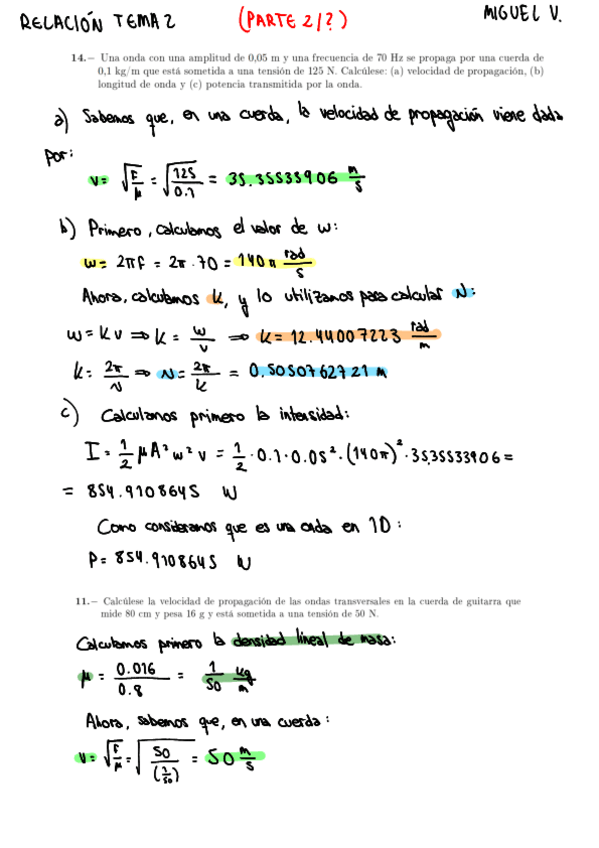 RELACIÓN TEMA 2 (PARTE 2/?) MIGUEL V.
14.− Una onda con una amplitud de 0,05 m y una frecuencia de 70 Hz se propaga por una cuerda de
0,1 kg/m que está sometida a una tensión de 125 N. Calcúlese: (a) velocidad de propagación, (b)
longitud de onda y (c) potencia transmitida por la onda.
a) Sabemos que, en una cuerda, la velocidad de propagación viene dada
por:
v = √(F/μ) = √(125/0.1) = 35.35533906 m/s
b) Primero, calculamos el valor de w:
w = 2πf = 2π · 70 = 140π rad/s
Ahora, calculamos K, y lo utilizamos para calcular λ:
w = K v ⇒ K = w/v ⇒ K = 12.44007223 rad/m
K = 2π/λ ⇒ λ = 2π/K = 0.5050762721 m
c) Calculamos primero la intensidad:
I = 1/2 μA²w²v = 1/2 · 0.1 · 0.05² · (140π)² · 35,35533906 =
= 854.9108645 W
Como consideramos que es una onda en 1D:
P = 854.9108645 W
11.− Calcúlese la velocidad de propagación de las ondas transversales en la cuerda de guitarra que
mide 80 cm y pesa 16 g y está sometida a una tensión de 50 N.
Calculamos primero la densidad lineal de masa:
μ = 0.016/0.8 = 1/50 kg/m
Ahora, sabemos que, en una cuerda:
v = √(F/μ) = √(50/(1/50)) = 50 m/s